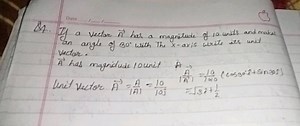 Q. If a vector A has a magnitude of 10 units and makes
an angle of 30° with the x-axis write its unit
vector.
A has magnitude 10 unit
Unit vector A = A/|A| = 10/|10|
A/|A| = 10/10 (cos30° î + sin30° ĵ)